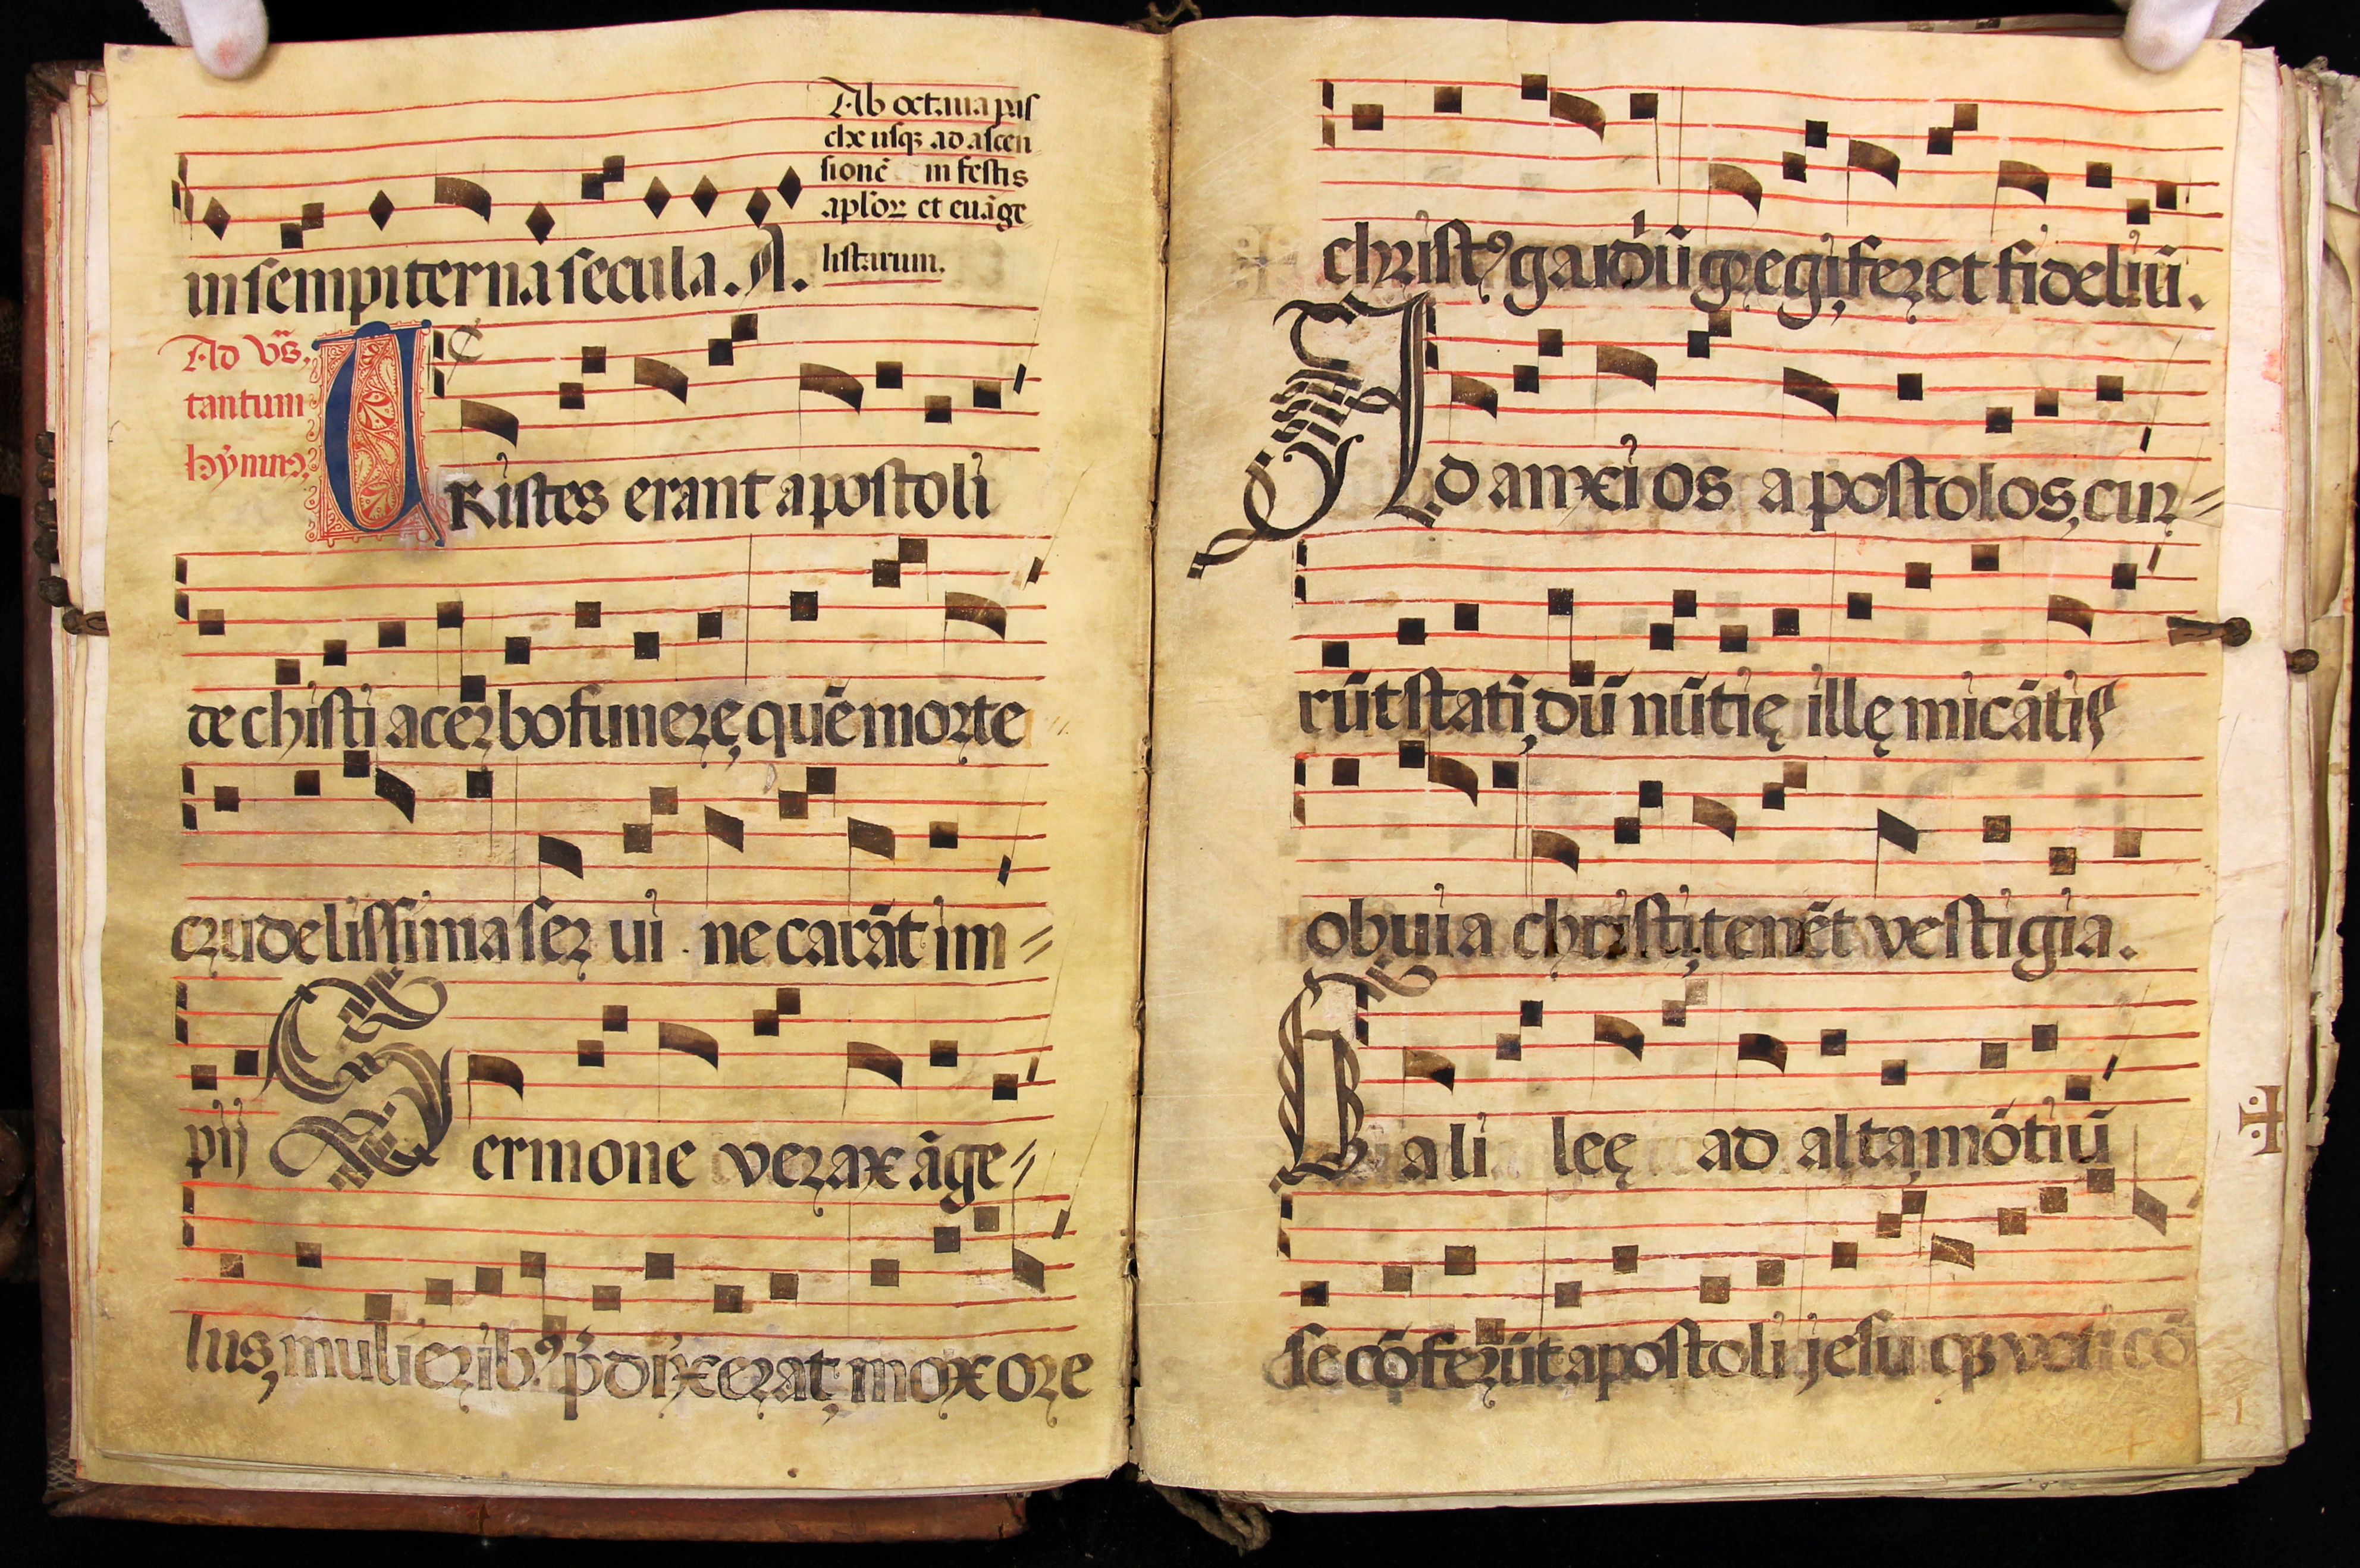 in sempiterna secula. A.
Ab octaua pas
che usqꝫ ad ascen
sionē in festis
aplõꝝ et euāge
listarum.
Ad vꝰs.
tantum
hymnꝰ.
TRistes erant apostoli
de chisti acerbo funerę, quē morte
crudelissima serui necarāt im
pij Sermone verax āge
lus, mulieribꝰ p̄dixerat, mox ore
christꝰ gaudiū gregi feret fideliū.
Ad anxios apostolos, cur
rūt statī, dū nūtię illę micātis
obuia christi, tenēt vestigia.
Galileę ad alta mōtiū
se cōferūt apostoli jesu qꝫ voti cō